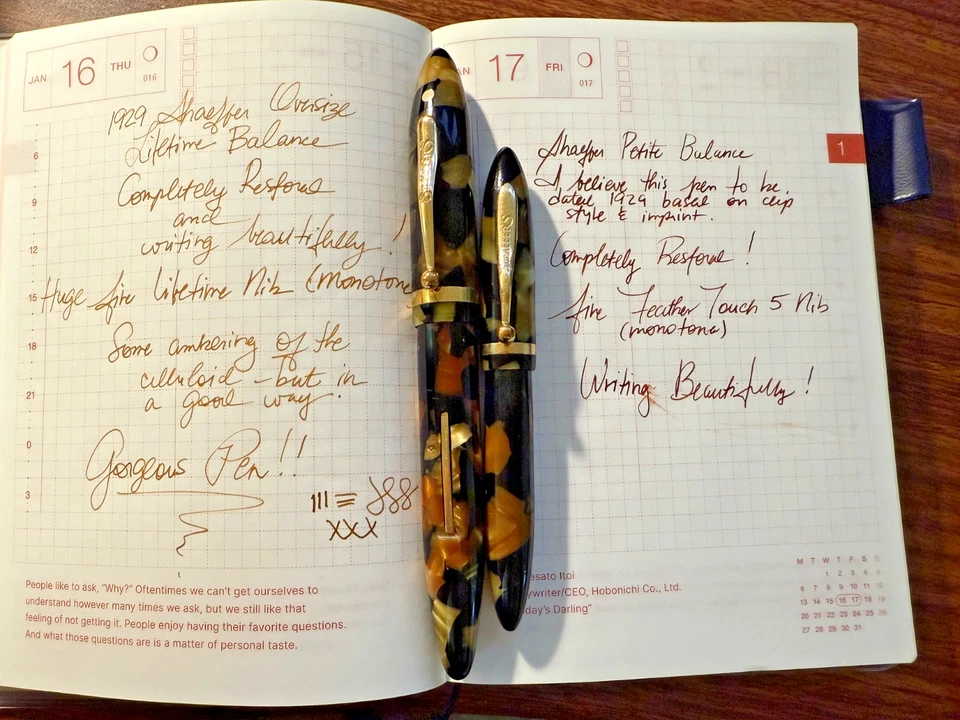 JAN 16 THU
016
1929 Sheaffer Oversize
Lifetime Balance
Completely Restored
and
writing beautifully!
Huge fire Lifetime Nib (Monotone
Some ambering of the
celluloid - but in
a good way.
Gorgeous Pen!!
||| ≡
XXX
6
9
12
15
18
21
0
3
People like to ask, "Why?" Oftentimes we can't get ourselves to
understand however many times we ask, but we still like that
feeling of not getting it. People enjoy having their favorite questions.
And what those questions are is a matter of personal taste.
Sheaffer's
Sheaffer's
AN 17 FRI
017
1
Sheaffer Petite Balance
I believe this pen to be
dated 1929 based on clip
style & imprint.
Completely Restored!
fire Feather Touch 5 Nib
(monotone)
Writing Beautifully!
esato Itoi
ywriter/CEO, Hobonichi Co., Ltd.
day's Darling"
M T W T F S S
1 2 3 4 5
6 7 8 9 10 11 12
13 14 15 16 17 18 19
20 21 22 23 24 25 26
27 28 29 30 31